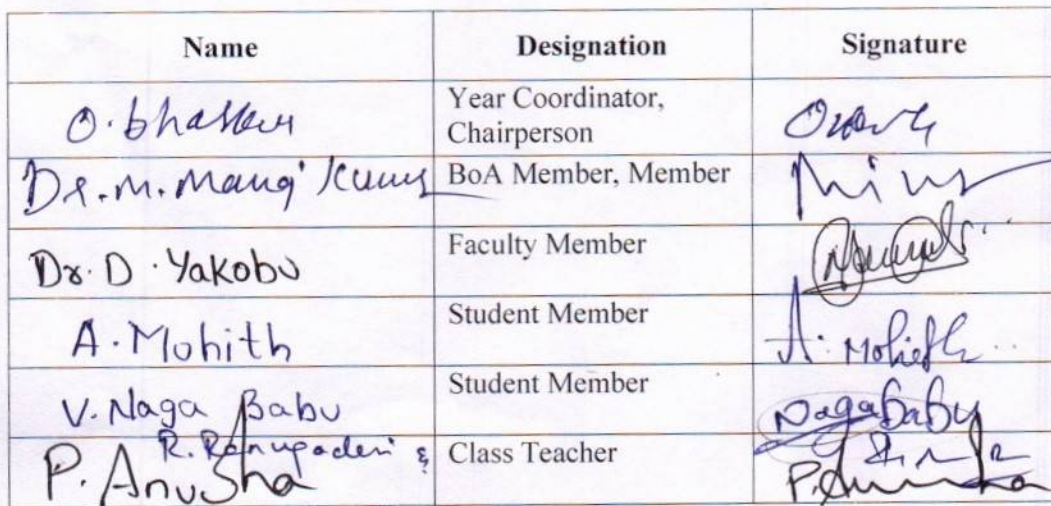 Name Designation Signature
O. bhaskar Year Coordinator,
Chairperson
Dr. M. Manoj Kumar BoA Member, Member
Dr. D. Yakobu Faculty Member
A. Mohith Student Member A. Mohith
V. Naga Babu Student Member Naga Babu
R. &
P. Anusha Class Teacher P. Anusha